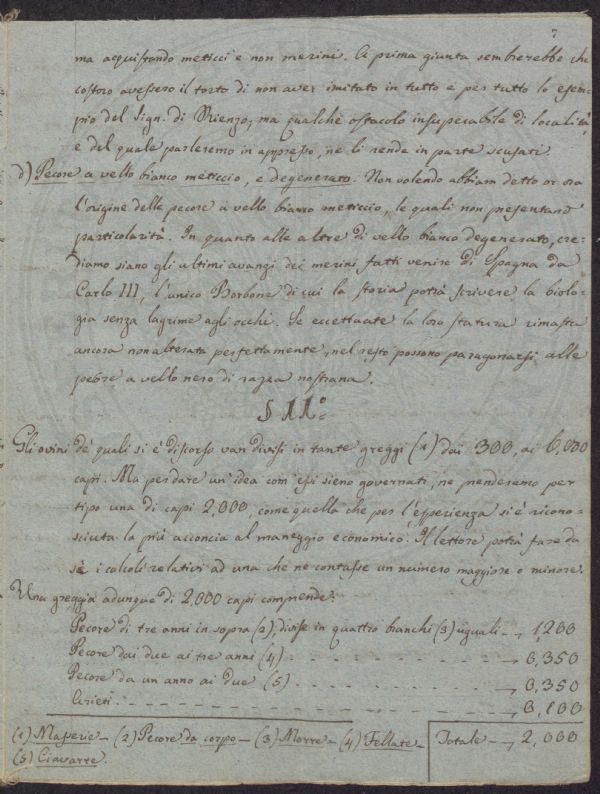 7
ma acquistando meticci e non merini. A prima giunta sembrerebbe che
costoro avessero il torto di non aver imitato in tutto e per tutto lo esem-
pio del Sign. di Rienzo, ma qualche ostacolo insuperabile di località,
e del quale parleremo in appresso, ne li rende in parte scusati.
d) Pecore a vello bianco meticcio, e degenerato. Non volendo abbiam detto or ora
l'origine delle pecore a vello bianco meticcio, le quali non presentano
particolarità. In quanto alle altre di vello bianco degenerato, cre-
diamo siano gli ultimi avanzi dei merini fatti venire di Spagna da
Carlo III, l'unico Borbone di cui la storia potrà scrivere la biolo-
gia senza lagrime agli occhi. Se eccettuate la loro statura rimasta
ancora non alterata perfettamente, nel resto possono paragonarsi alle
pecore a vello nero di razza nostrana.
§ II°
Gli ovini de' quali si è discorso van divisi in tante greggi (1) dai 300, ai 6,000
capi. Ma per dare un'idea com'essi sieno governati, ne prenderemo per
tipo una di capi 2,000, come quella che per l'esperienza si è ricono-
sciuta la più acconcia al maneggio economico. Il lettore potrà fare da
sè i calcoli relativi ad una che ne contasse un numero maggiore o minore.
Una greggia adunque di 2,000 capi comprende:
Pecore di tre anni in sopra (2), divise in quattro branchi (3) uguali — 1,200
Pecore dai due ai tre anni (4) . - - - - - - - - 0,350
Pecore da un anno ai due (5) . - - - - - - - 0,350
Arieti . - - - - - - - - - - - 0,100
(1) Masserie — (2) Pecore da corpo — (3) Morre — (4) Fellate — Totale — 2,000
(5) Ciavarre.